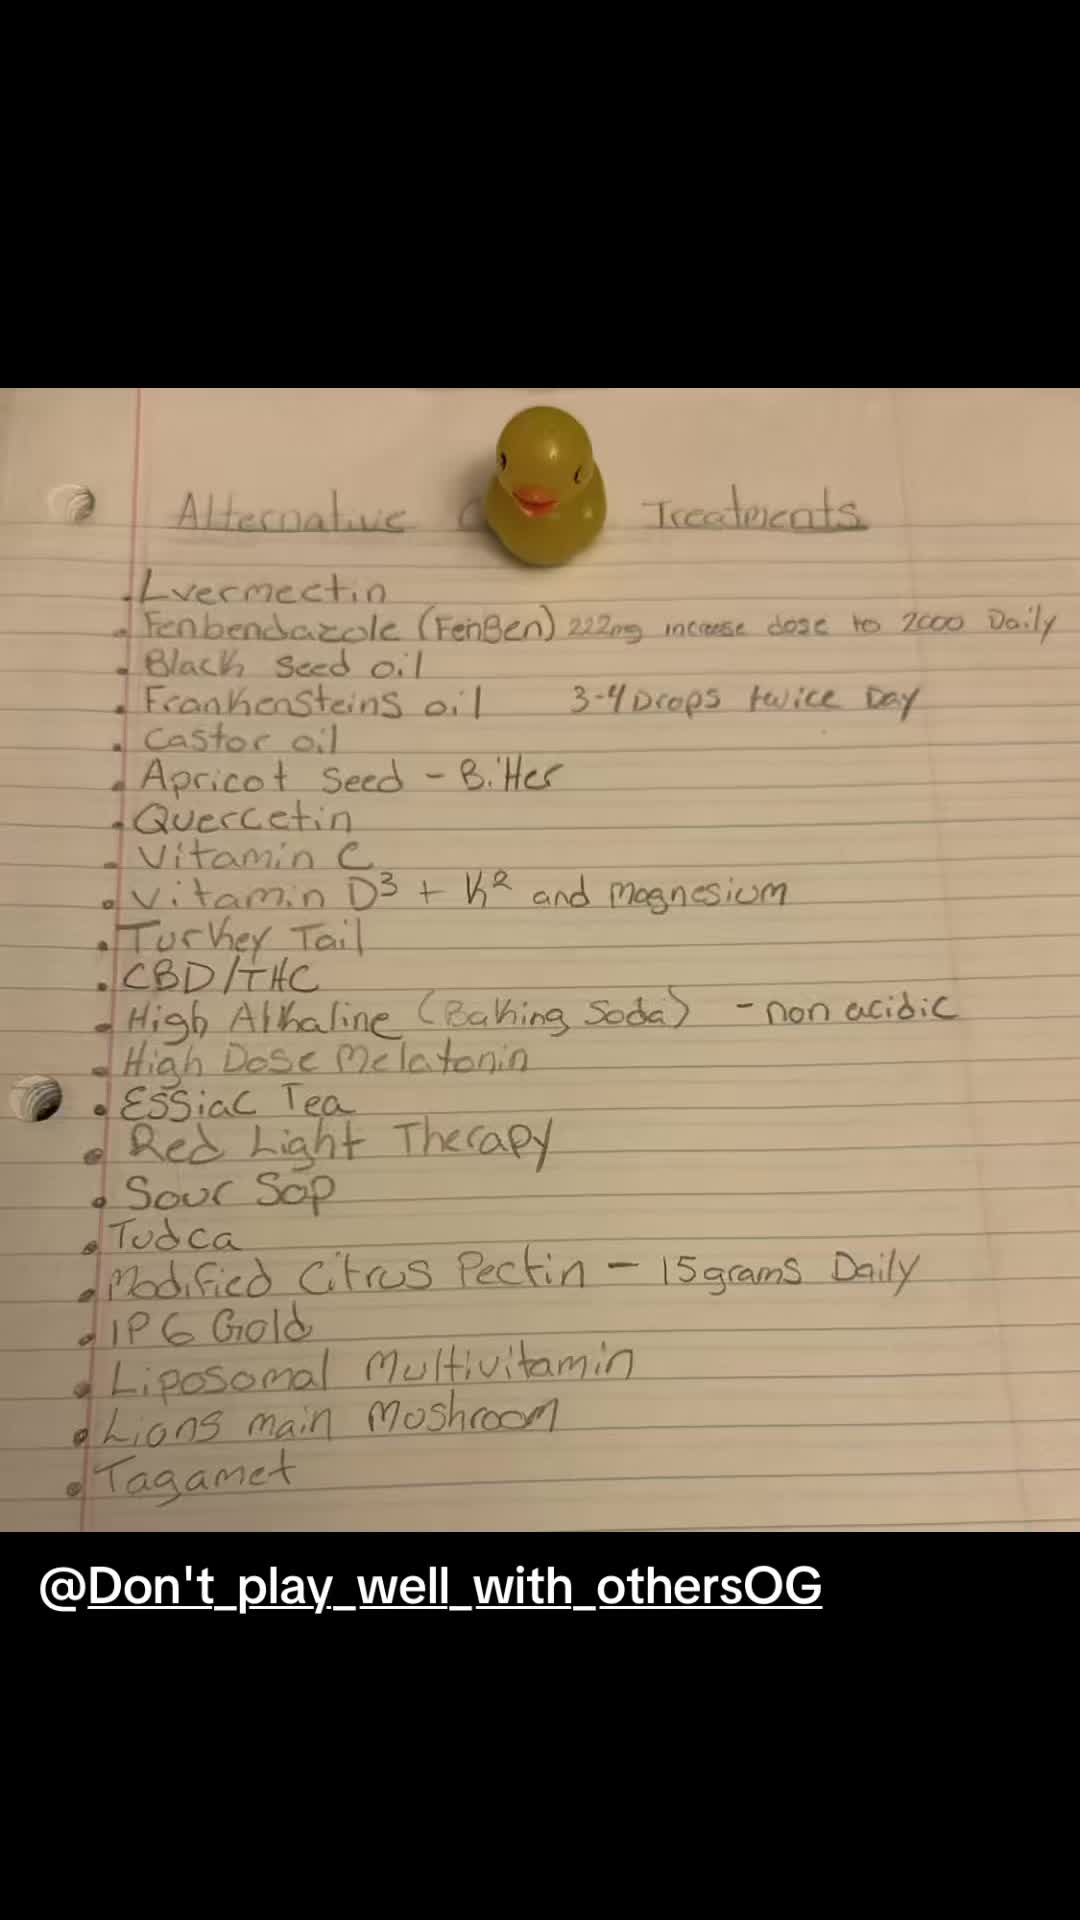 Alternative C Treatments
Ivermectin
Fenbendazole (FenBen) 222mg increse dose to 2000 Daily
Black Seed oil
Frankensteins oil 3-4 Drops twice Day
Castor oil
Apricot Seed - Bitter
Quercetin
Vitamin C
Vitamin D3 + K2 and magnesium
Turkey Tail
CBD/THC
High Alkaline (Baking Soda) - non acidic
High Dose Melatonin
Essiac Tea
Red Light Therapy
Sour Sop
Tudca
Modified Citrus Pectin - 15grams Daily
IP6 Gold
Liposomal Multivitamin
Lions main Mushroom
Tagamet
@Don't_play_well_with_othersOG